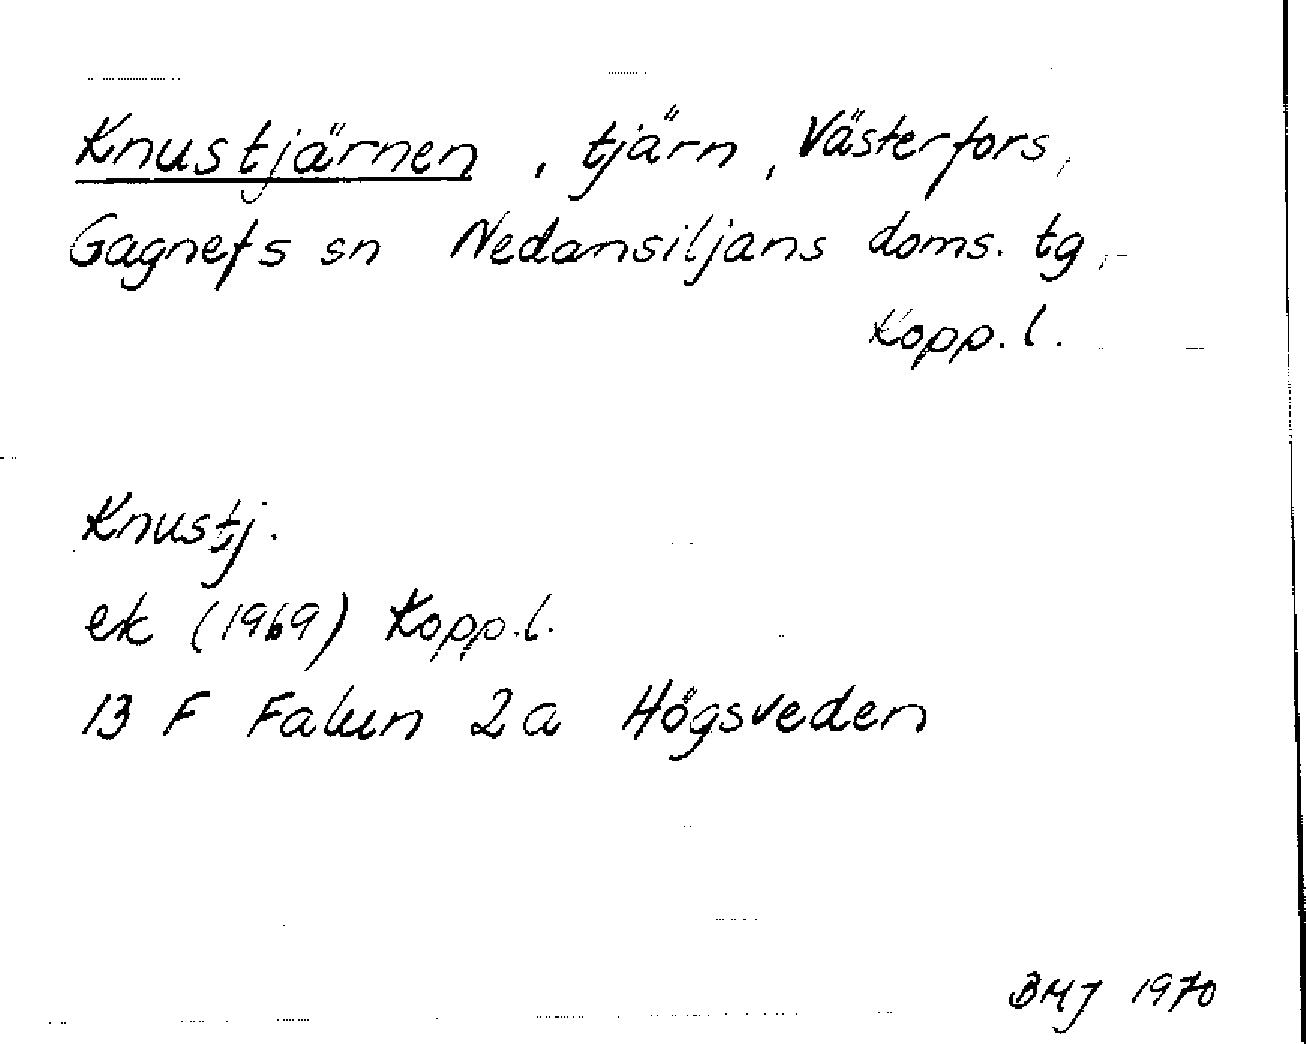 Knustjärnen, tjärn, Västerfors,
Gagnefs sn Nedansiljans doms. tg,
Kopp. l.
Knustj.
ek (1969) Kopp. l.
13 F Falun 2a Högsveden
BMJ 1970